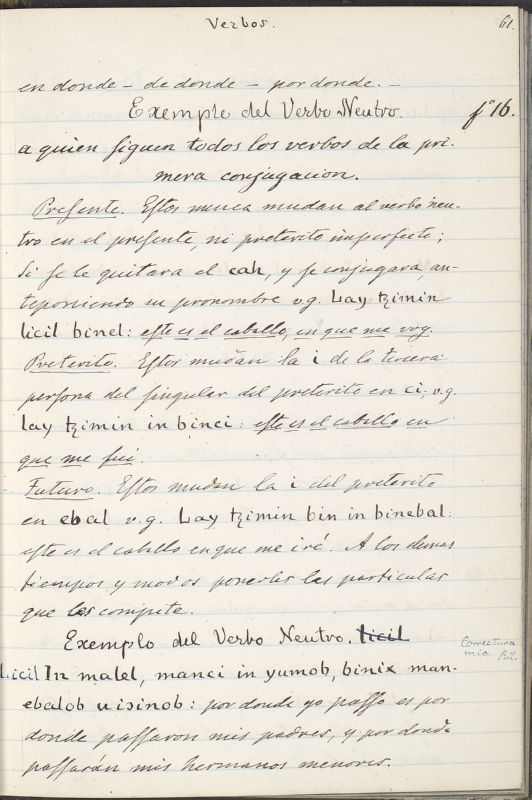 Verbos.
61.
en donde – de donde – por donde. –
Exemplo del Verbo Neutro.
fº 16.
a quien siguen todos los verbos de la pri-
mera conjugacion.
Presente. Estos nunca mudan al verbo neu-
tro en el presente, ni preterito imperfecto;
Si se le quitara el cah, y se conjugara, an-
teponiendo su pronombre v.g. Lay tzimin
licil binel: este es el caballo, en que me voy.
Preterito. Estos mudan la i de la tercera
persona del singular del preterito en ci, v.g.
Lay tzimin in binci: este es el caballo en
que me fui.
Futuro. Estos mudan la i del preterito
en ebal v.g. Lay tzimin bin in binebal:
este es el caballo en que me iré. A los demas
tiempos y modos ponerles las particulas
que les compite.
Exemplo del Verbo Neutro. licil
Correctura
mia.
Licil In malel, manci in yumob, binix man-
ebalob uiɔinob: por donde yo passo es por
donde passaron mis padres, y por donde
passarán mis hermanos menores.